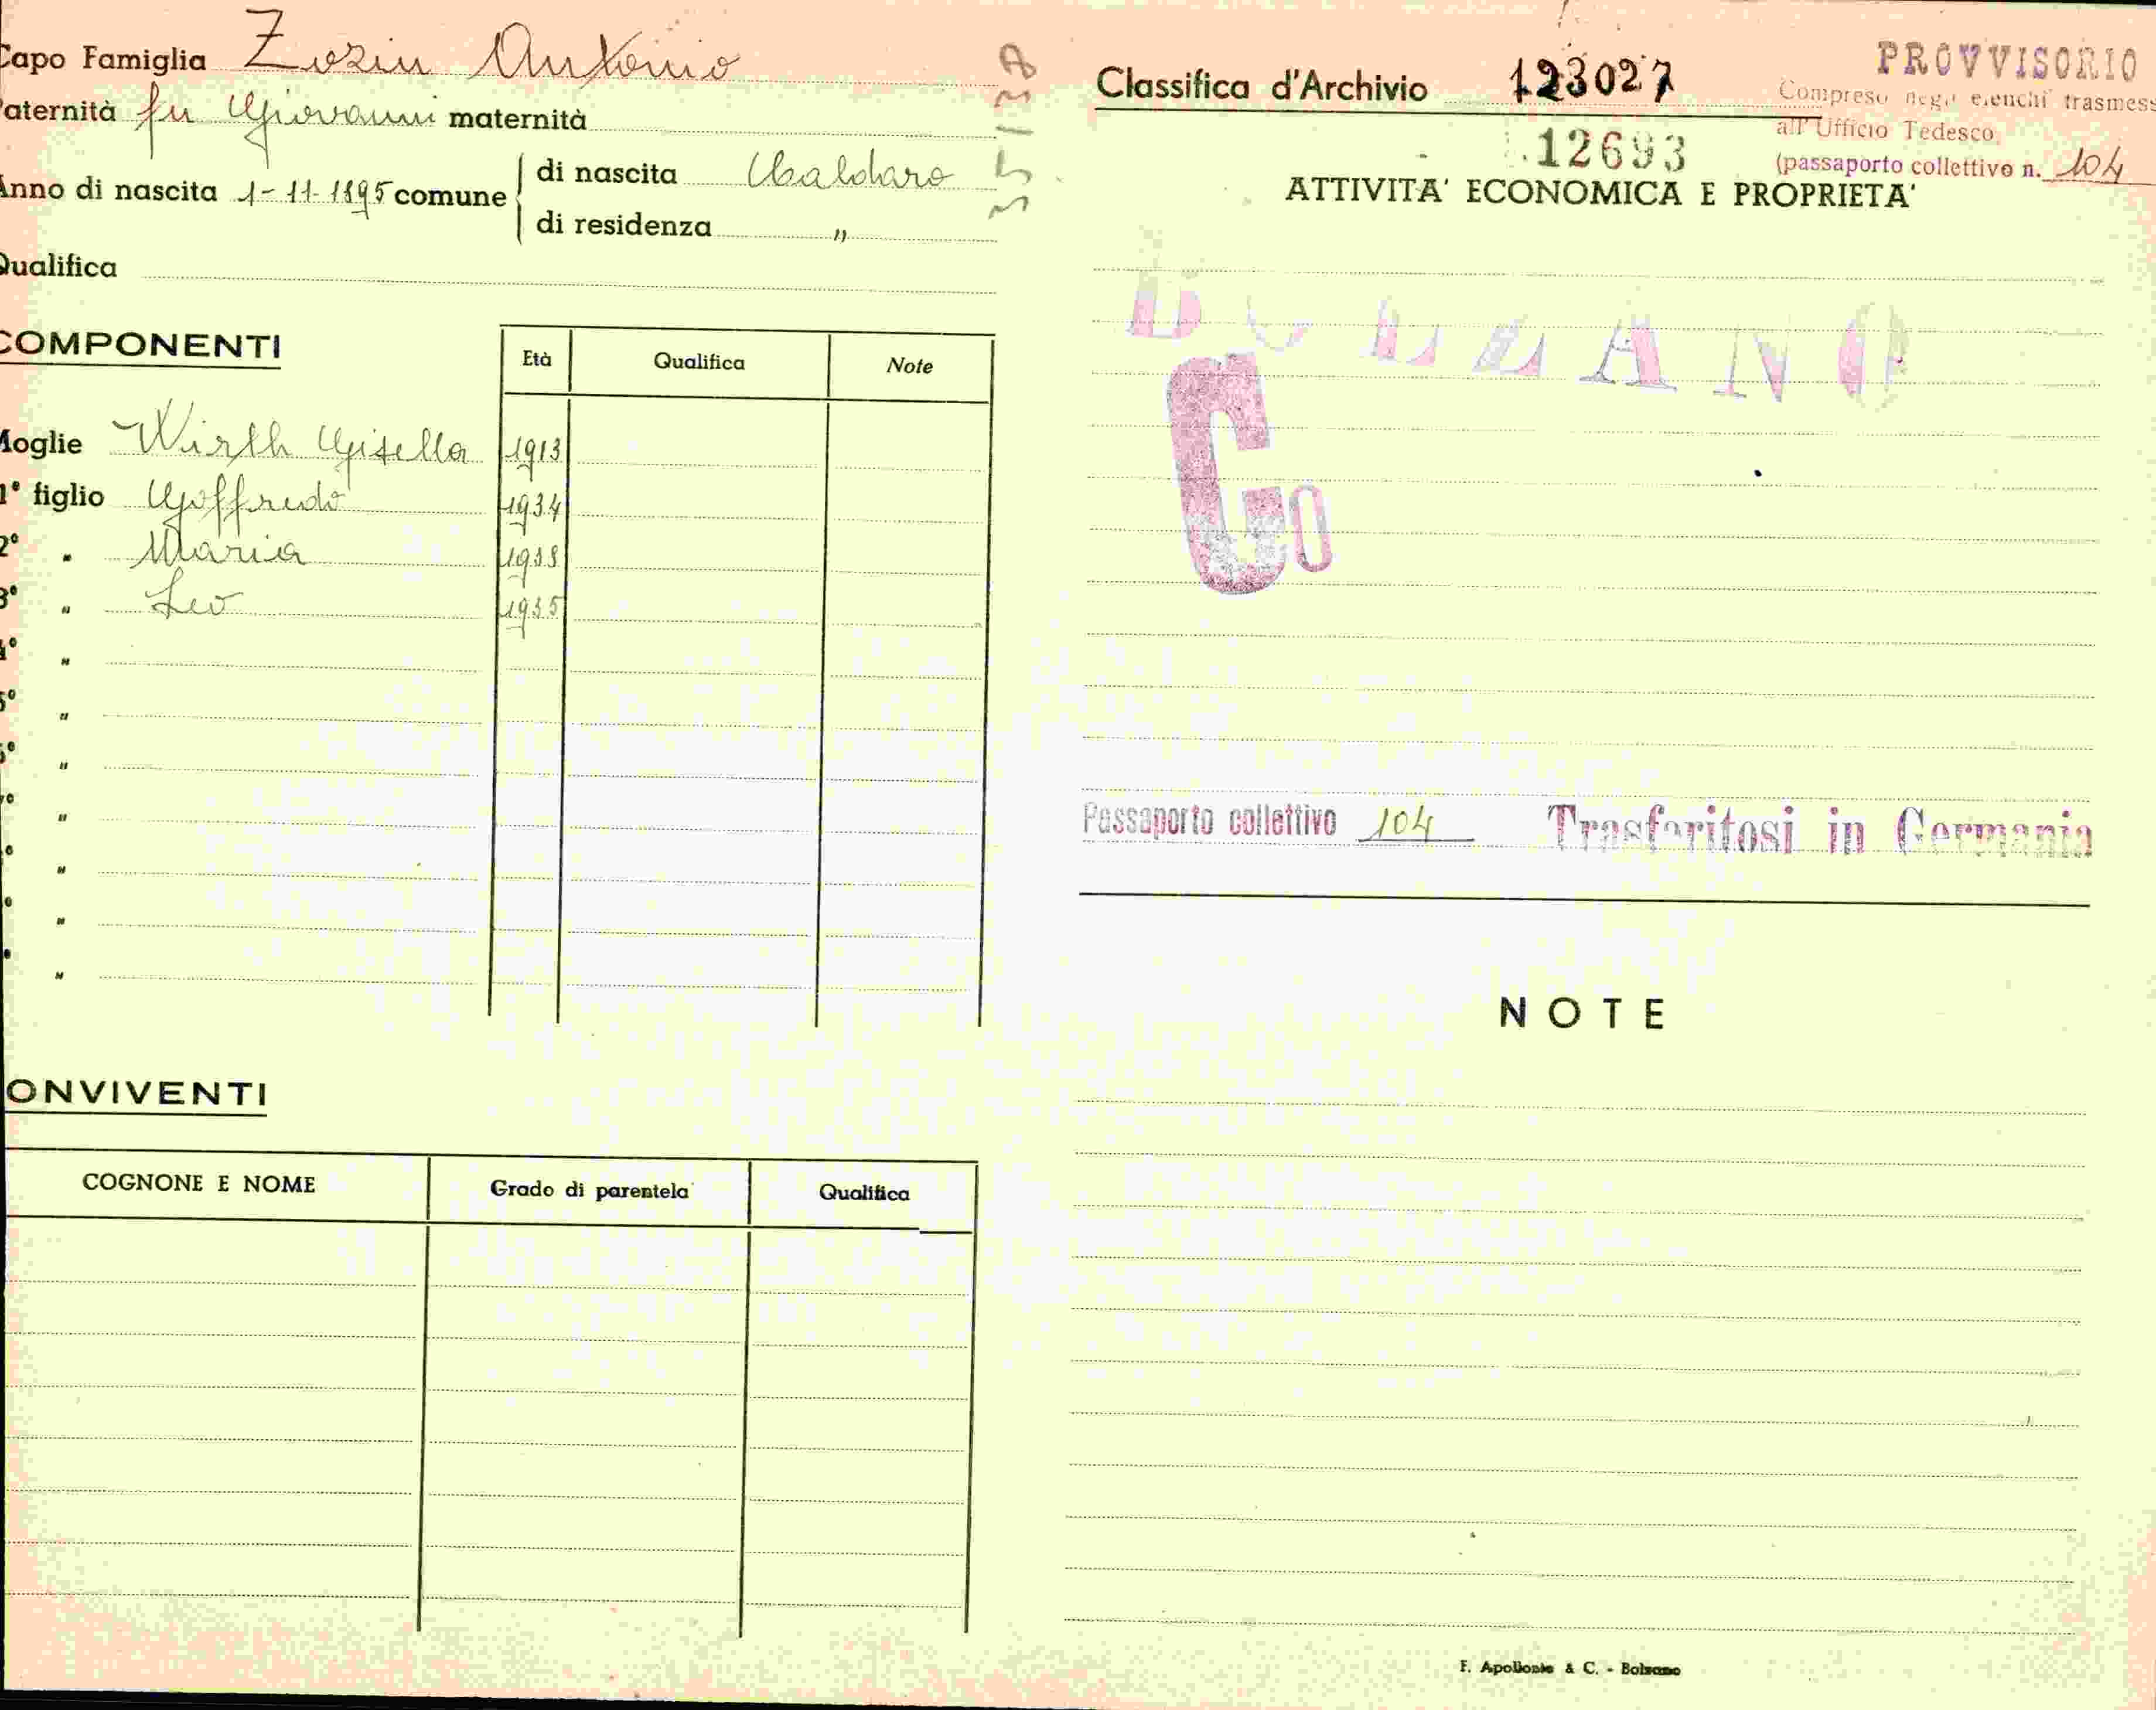 Capo Famiglia Zozin Antonio
aternità fu Giovanni maternità
Anno di nascita 1-11-1895 comune di nascita Caldaro
di residenza "
Qualifica
COMPONENTI
Età Qualifica Note
Moglie Wirth Gisella 1913
1° figlio Goffredo 1934
2° " Maria 1938
3° " Leo 1935
4° "
5° "
6° "
"
"
"
"
ONVIVENTI
COGNONE E NOME Grado di parentela Qualifica
Classifica d'Archivio 123027
PROVVISORIO
Compreso negli elenchi trasmess
all'Ufficio Tedesco
(passaporto collettivo n. 104
12693
ATTIVITA' ECONOMICA E PROPRIETA'
BOLZANO
G0
Passaporto collettivo 104 Trasferitosi in Germania
NOTE
F. Apollonio & C. - Bolzano